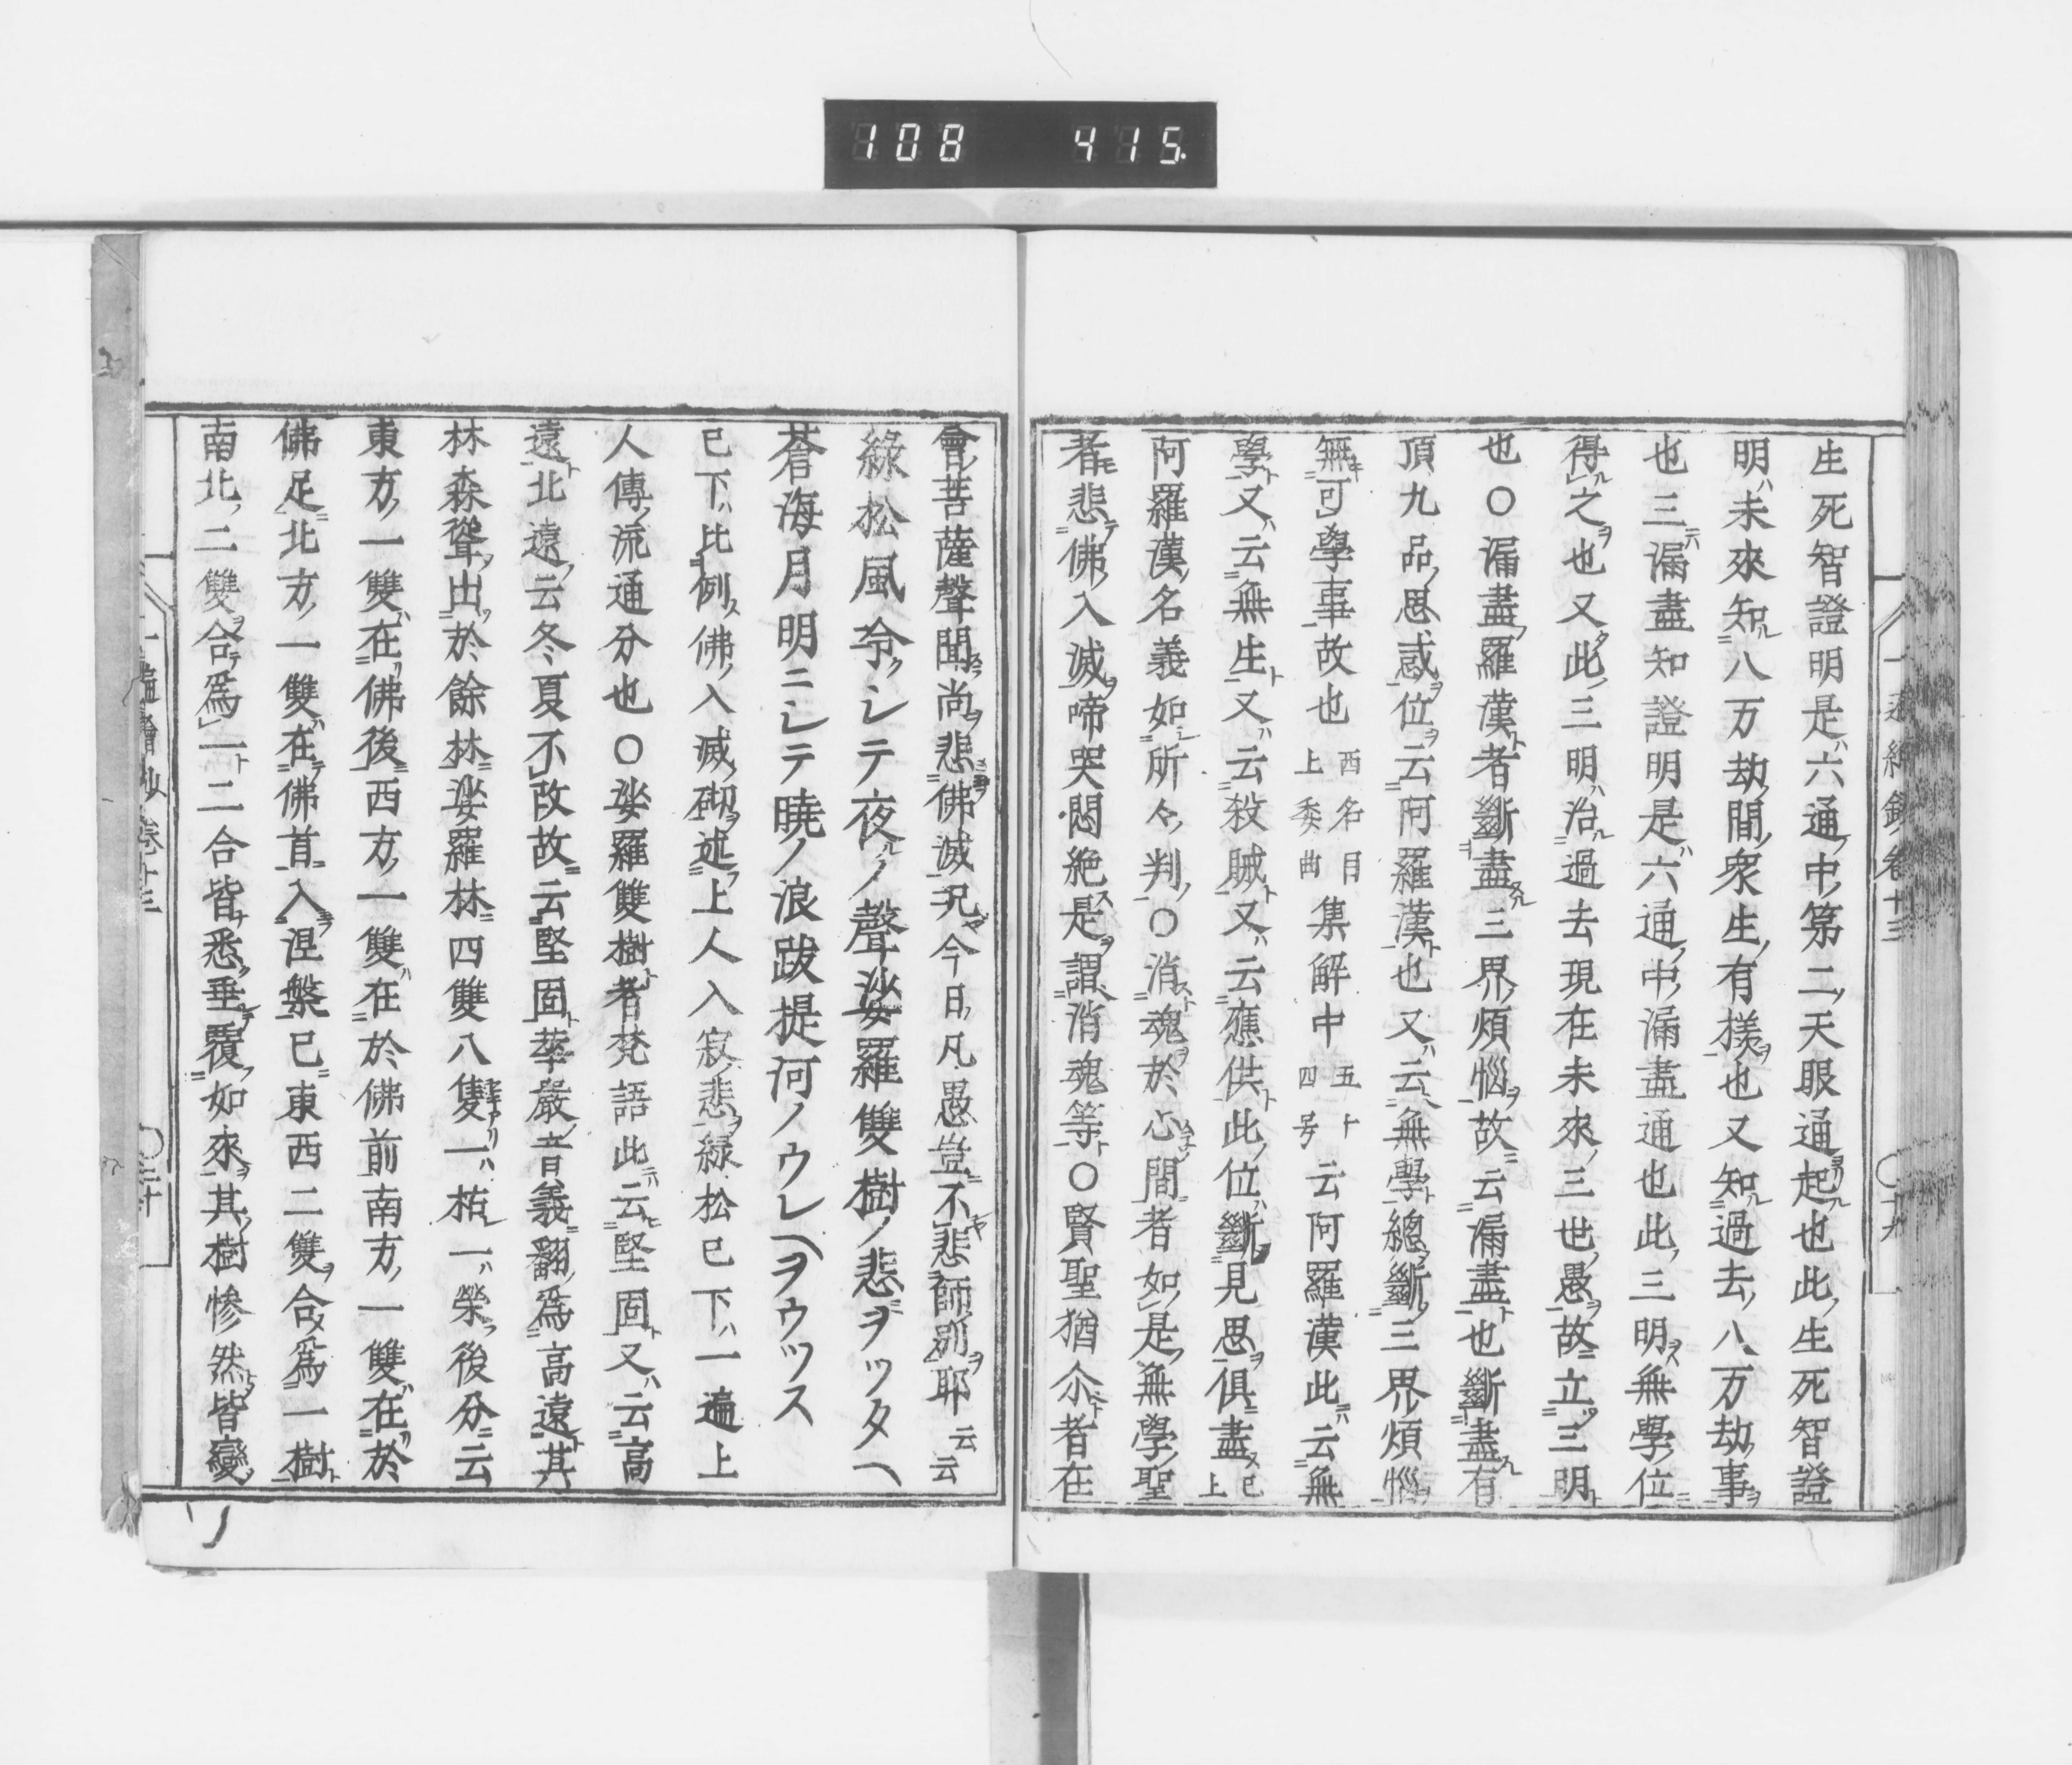 108 415
生死智證明是六通中第二天眼通起也此生死智證
明未來知八万劫間衆生有樣也又知過去八万劫事
也三漏盡知證明是六通中漏盡通也此三明無學位
得之也又此三明治過去現在未來三世愚故立三明
也〇漏盡羅漢者斷盡三界煩惱故云漏盡也斷盡有
頂九品思惑位云阿羅漢也又云無學總斷三界煩惱
無可學事故也西名目上委曲集解中五十四号云阿羅漢此云無
學又云無生又云殺賊又云應供此位斷見思俱盡已上
阿羅漢名義如所々判〇消魂於心間者如是無學聖
者悲佛入滅啼哭悶絶是謂消魂等〇賢聖猶尒者在
會菩薩聲聞尚悲佛滅況今日凡愚豈不悲師別耶云云
綠松風冷シテ夜ノ聲娑羅雙樹ノ悲ヲツタヘ
蒼海月明ニシテ曉ノ浪跋提河ノウレヘヲウツス
已下比例佛入滅砌述上人入寂悲綠松已下一遍上
人傳流通分也〇娑羅雙樹者梵語此云堅固又云高
遠北遠云冬夏不改故云堅固華嚴音義翻爲高遠其
林森聳出於餘林娑羅林四雙八隻一枯一榮後分云
東方一雙在佛後西方一雙在於佛前南方一雙在於
佛足北方一雙在佛首入涅槃已東西二雙合爲一樹
南北二雙合爲一二合皆悉垂覆如來其樹慘然皆變